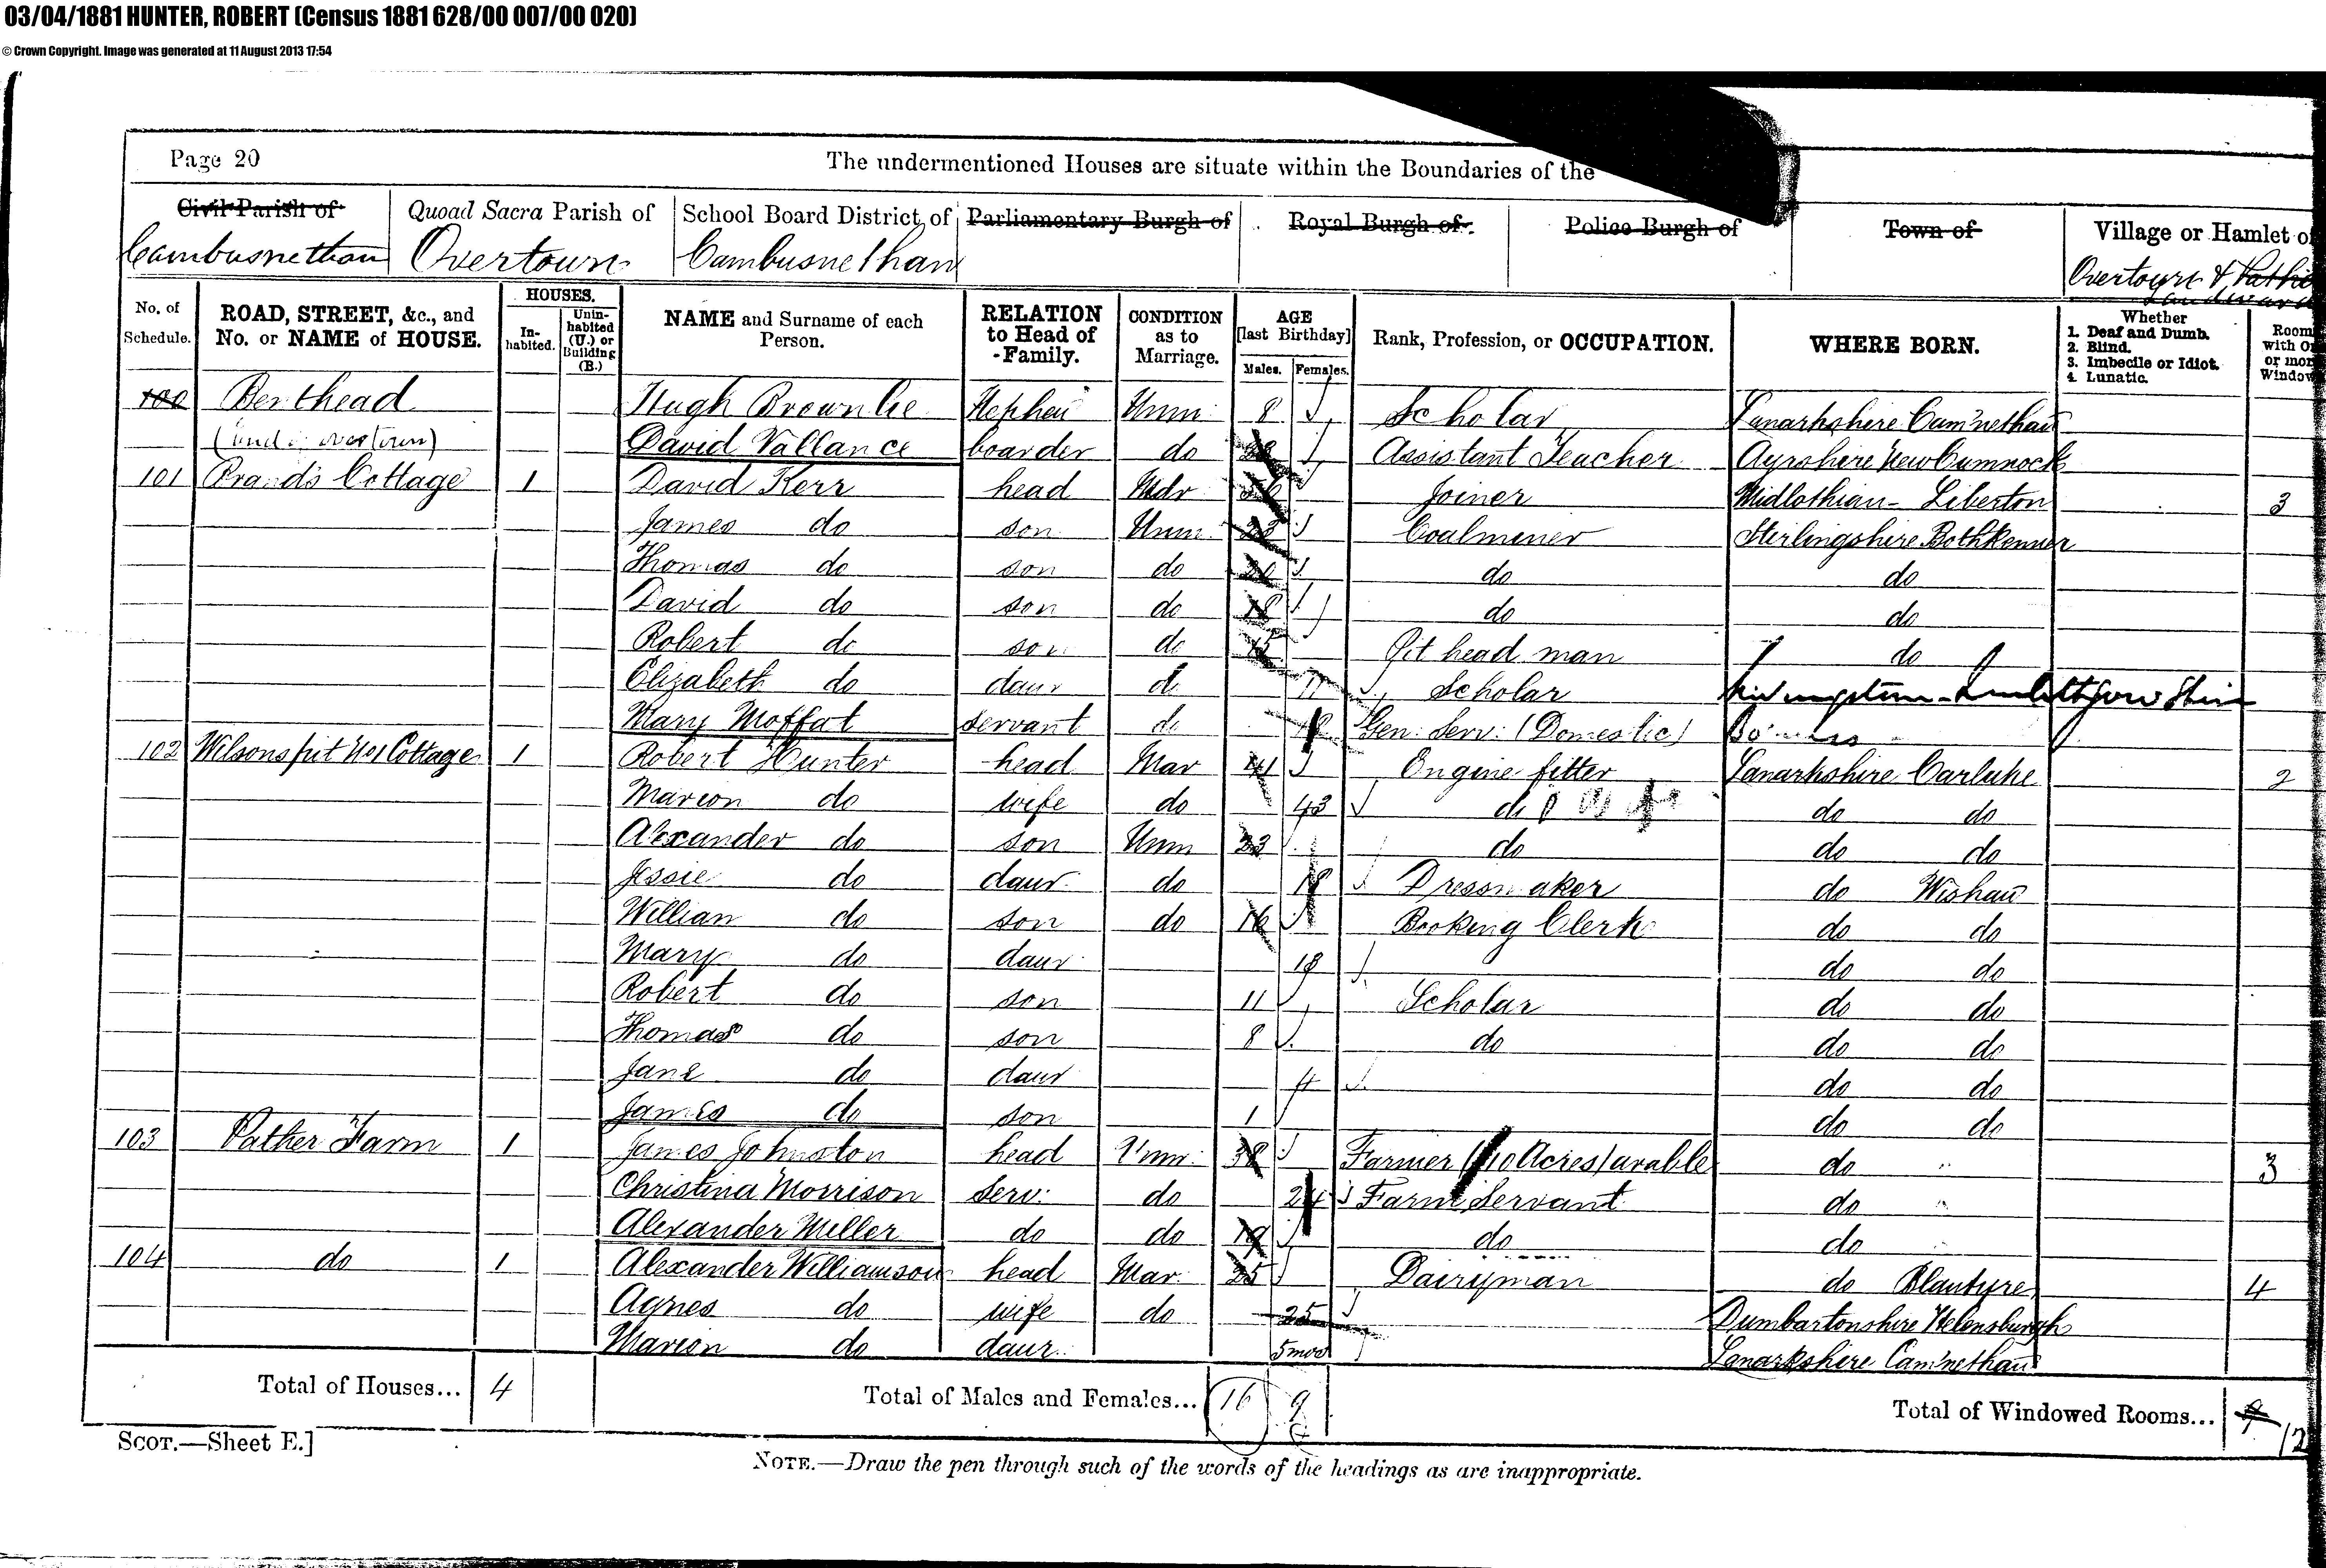 03/04/1881 HUNTER, ROBERT (Census 1881 628/00 007/00 020)
© Crown Copyright. Image was generated at 11 August 2013 17:54
Page 20 The undermentioned Houses are situate within the Boundaries of the
Civil Parish of Quoad Sacra Parish of School Board District of Parliamentary Burgh of Royal Burgh of Police Burgh of Town of Village or Hamlet of
Cambusnethan Overtown Cambusnethan Overtown &
No. of Schedule. ROAD, STREET, &c., and No. or NAME of HOUSE. HOUSES. In-habited. Unin-habited (U.) or Building (B.) NAME and Surname of each Person. RELATION to Head of Family. CONDITION as to Marriage. AGE [last Birthday] Males. Females. Rank, Profession, or OCCUPATION. WHERE BORN. Whether 1. Deaf and Dumb. 2. Blind. 3. Imbecile or Idiot. 4. Lunatic. Room with O or mor Window
100 Hugh Brownlie Nephew Unm 8 Scholar Lanarkshire Cam'nethan
David Vallance boarder do Assistant Teacher Ayrshire New Cumnock
101 Cottage 1 David Kerr head Joiner Midlothian - Liberton 3
James do son Unm 23 Coalminer Stirlingshire Bothkenner
Thomas do son do 20 do do
David do son do 18 do do
Robert do son do 15 Pit head man do
Elizabeth do daur do 11 Scholar
Mary Moffat servant do 18 Gen. Serv: (Domestic)
102 Wilsons pit No 1 Cottage 1 Robert Hunter head Mar 41 Engine fitter Lanarkshire Carluke 2
Marion do wife do 43 do do do
Alexander do son Unm 23 do do do
Jessie do daur do 18 Dressmaker do Wishaw
William do son do 16 Booking Clerk do do
Mary do daur do do
Robert do son 11 Scholar do do
Thomas do son 8 do do do
Jane do daur 4 do do
James do son 1 do do
103 Pather Farm 1 James Johnston head Unm: 38 Farmer (110 Acres) arable do " 3
Christina Morrison Serv: do 24 Farm Servant do "
Alexander Miller do do 19 do do "
104 do 1 Alexander Williamson head Mar 25 Dairyman do Blantyre 4
Agnes do wife do 25 Dumbartonshire Helensburgh
Marion do daur. 5mos Lanarkshire Cam'nethan
Total of Houses... 4 Total of Males and Females... 16 9 Total of Windowed Rooms... 9 12
SCOT.—Sheet E.]
NOTE.—Draw the pen through such of the words of the headings as are inappropriate.